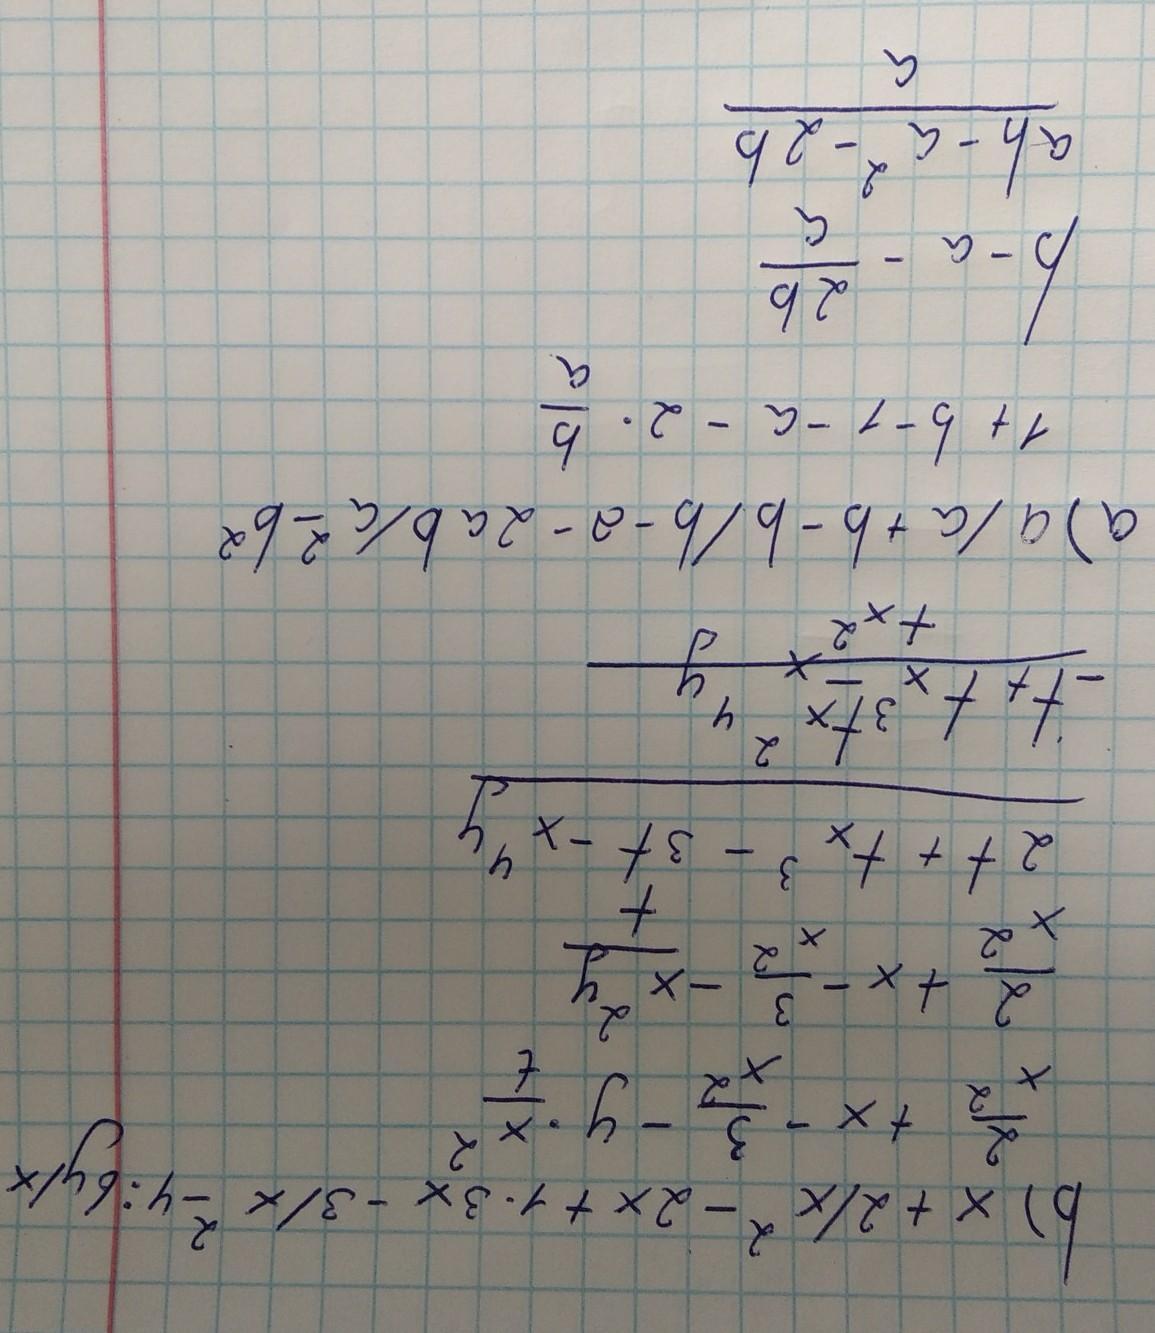 b) x + 2/x² - 2x + 1 · 3x - 3/x² - 4 : 6y/x
2/x² + x - 3/x² - y · x²/t
2/x² + x - 3/x² - x²y/t
2t + tx³ - 3t - x⁴y
-t + tx³ - x⁴y / tx²
a) a/a + b - b/b - a - 2ab/a² - b²
1 + b - 1 - a - 2 · b/a
b - a - 2b/a
ab - a² - 2b / a